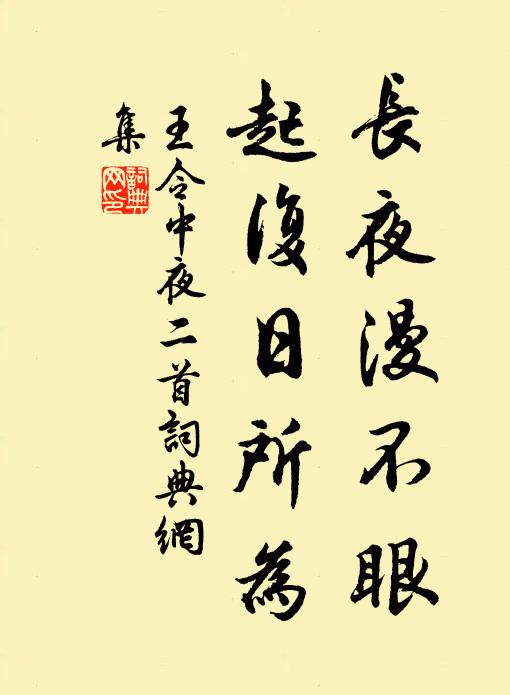 長夜漫不眼
起復日所為
王令中夜二首詞典網
集
詞典
网印